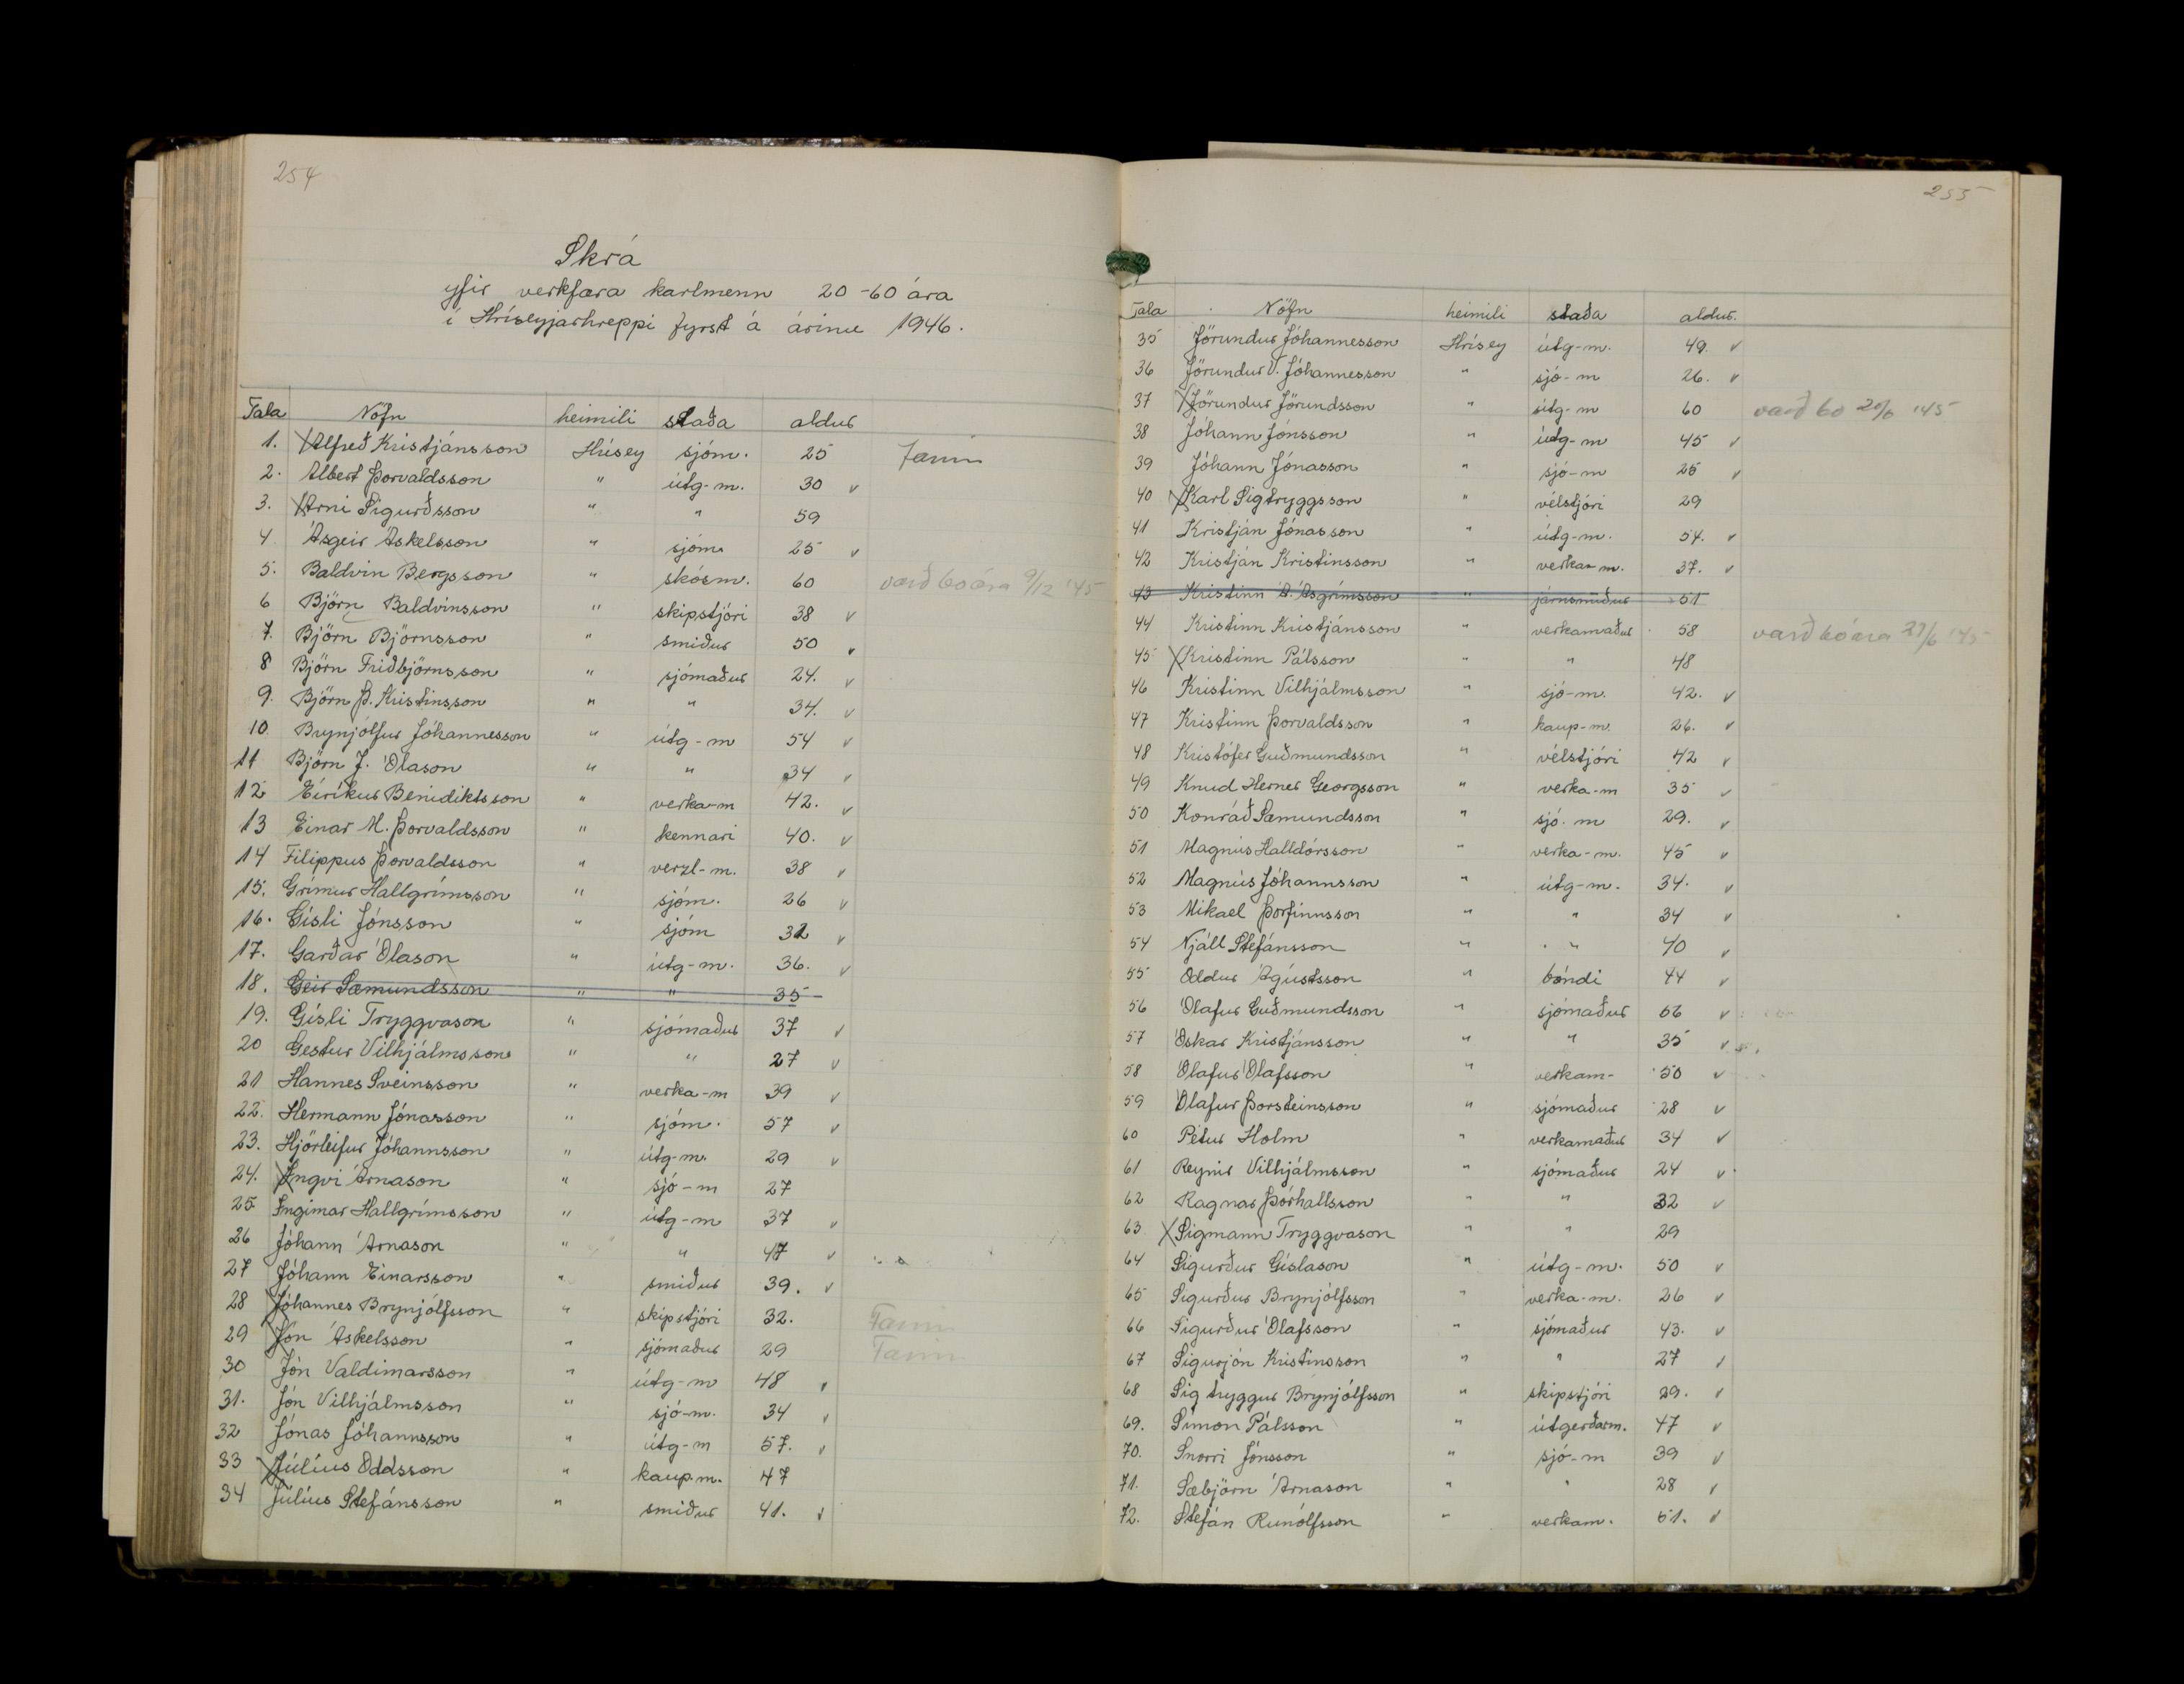 254
Skrá
yfir verkfæra karlmenn 20-60 ára
í Hríseyjarhreppi fyrst á árinu 1946.
Tala Nöfn heimili staða aldur
1. Alfreð Kristjánsson Hrísey sjóm. 25 Farin
2. Albert Þorvaldsson " útg-m. 30 v
3. Árni Sigurðsson " " 59
4. Ásgeir Áskelsson " sjóm 25 v
5. Baldvin Bergsson " skósm. 60 varð 60 ára 9/12 '45
6 Björn Baldvinsson " skipstjóri 38 v
7. Björn Björnsson " smiður 50 v
8 Björn Friðbjörnsson " sjómaður 24. v
9. Björn Þ. Kristinsson " " 34. v
10 Brynjólfur Jóhannesson " útg-m 54 v
11 Björn J. Ólason " " 34 v
12 Eiríkur Benidiktsson " verka-m 42. v
13 Einar M. Þorvaldsson " kennari 40. v
14 Filippus Þorvaldsson " verzl-m. 38 v
15. Grímur Hallgrímsson " sjóm. 26 v
16. Gísli Jónsson " sjóm 32 v
17. Garðar Ólason " útg-m. 36. v
18. Geir Sæmundsson " " 35
19. Gísli Tryggvason " sjómaður 37 v
20 Gestur Vilhjálmsson " " 27 v
21 Hannes Sveinsson " verka-m 39 v
22. Hermann Jónasson " sjóm. 57 v
23. Hjörleifur Jóhannsson " útg-m. 29 v
24. Ingvi Árnason " sjó-m 27
25 Ingimar Hallgrímsson " útg-m 37 v
26 Jóhann Árnason " " 47 v
27 Jóhann Einarsson " smiður 39. v
28 Jóhannes Brynjólfsson " skipstjóri 32. Farin
29 Jón Áskelsson " sjómaður 29 Farin
30 Jón Valdimarsson " útg-m 48 v
31. Jón Vilhjálmsson " sjó-m. 34 v
32 Jónas Jóhannsson " útg-m 57. v
33 Júlíus Oddsson " kaupm. 47
34 Júlíus Stefánsson " smiður 41. v
255
Tala Nöfn heimili staða aldur.
35 Jörundur Jóhannesson Hrísey útg-m. 49. v
36 Jörundur V. Jóhannesson " sjó-m 26. v
37 Jörundur Jörundsson " útg-m 60 varð 60 20/6 '45
38 Jóhann Jónsson " útg-m 45 v
39 Jóhann Jónasson " sjó-m 25 v
40 Karl Sigtryggsson " vélstjóri 29
41 Kristján Jónasson " útg-m. 54. v
42 Kristján Kristinsson " verka-m. 37. v
43 Kristinn Á. Ásgrímsson " járnsmiður 51
44 Kristinn Kristjánsson " verkamaður 58 varð 60 ára 27/6 '45
45 Kristinn Pálsson " " 48
46 Kristinn Vilhjálmsson " sjó-m. 42. v
47 Kristinn Þorvaldsson " kaup-m. 26. v
48 Kristófer Guðmundsson " vélstjóri 42 v
49 Knud Herner Georgsson " verka-m 35 v
50 Konráð Sæmundsson " sjó-m 29. v
51 Magnús Halldórsson " verka-m. 45 v
52 Magnús Jóhannsson " útg-m. 34. v
53 Mikael Þorfinnsson " " 34 v
54 Njáll Stefánsson " " 40 v
55 Oddur Ágústsson " bóndi 44 v
56 Ólafur Guðmundsson " sjómaður 56 v
57 Óskar Kristjánsson " " 35 v
58 Ólafur Ólafsson " verkam- 50 v
59 Ólafur Þorsteinsson " sjómaður 28 v
60 Pétur Holm " verkamaður 34 v
61 Reynir Vilhjálmsson " sjómaður 24 v
62 Ragnar Þórhallsson " " 32 v
63 Sigmann Tryggvason " " 29
64 Sigurður Gíslason " útg-m. 50 v
65 Sigurður Brynjólfsson " verka-m. 26 v
66 Sigurður Ólafsson " sjómaður 43. v
67 Sigurjón Kristinsson " " 27 v
68 Sigtryggur Brynjólfsson " skipstjóri 29. v
69. Símon Pálsson " útgerðarm. 47 v
70. Snorri Jónsson " sjó-m 39 v
71. Sæbjörn Árnason " " 28 v
72. Stefán Runólfsson " verkam. 51. v